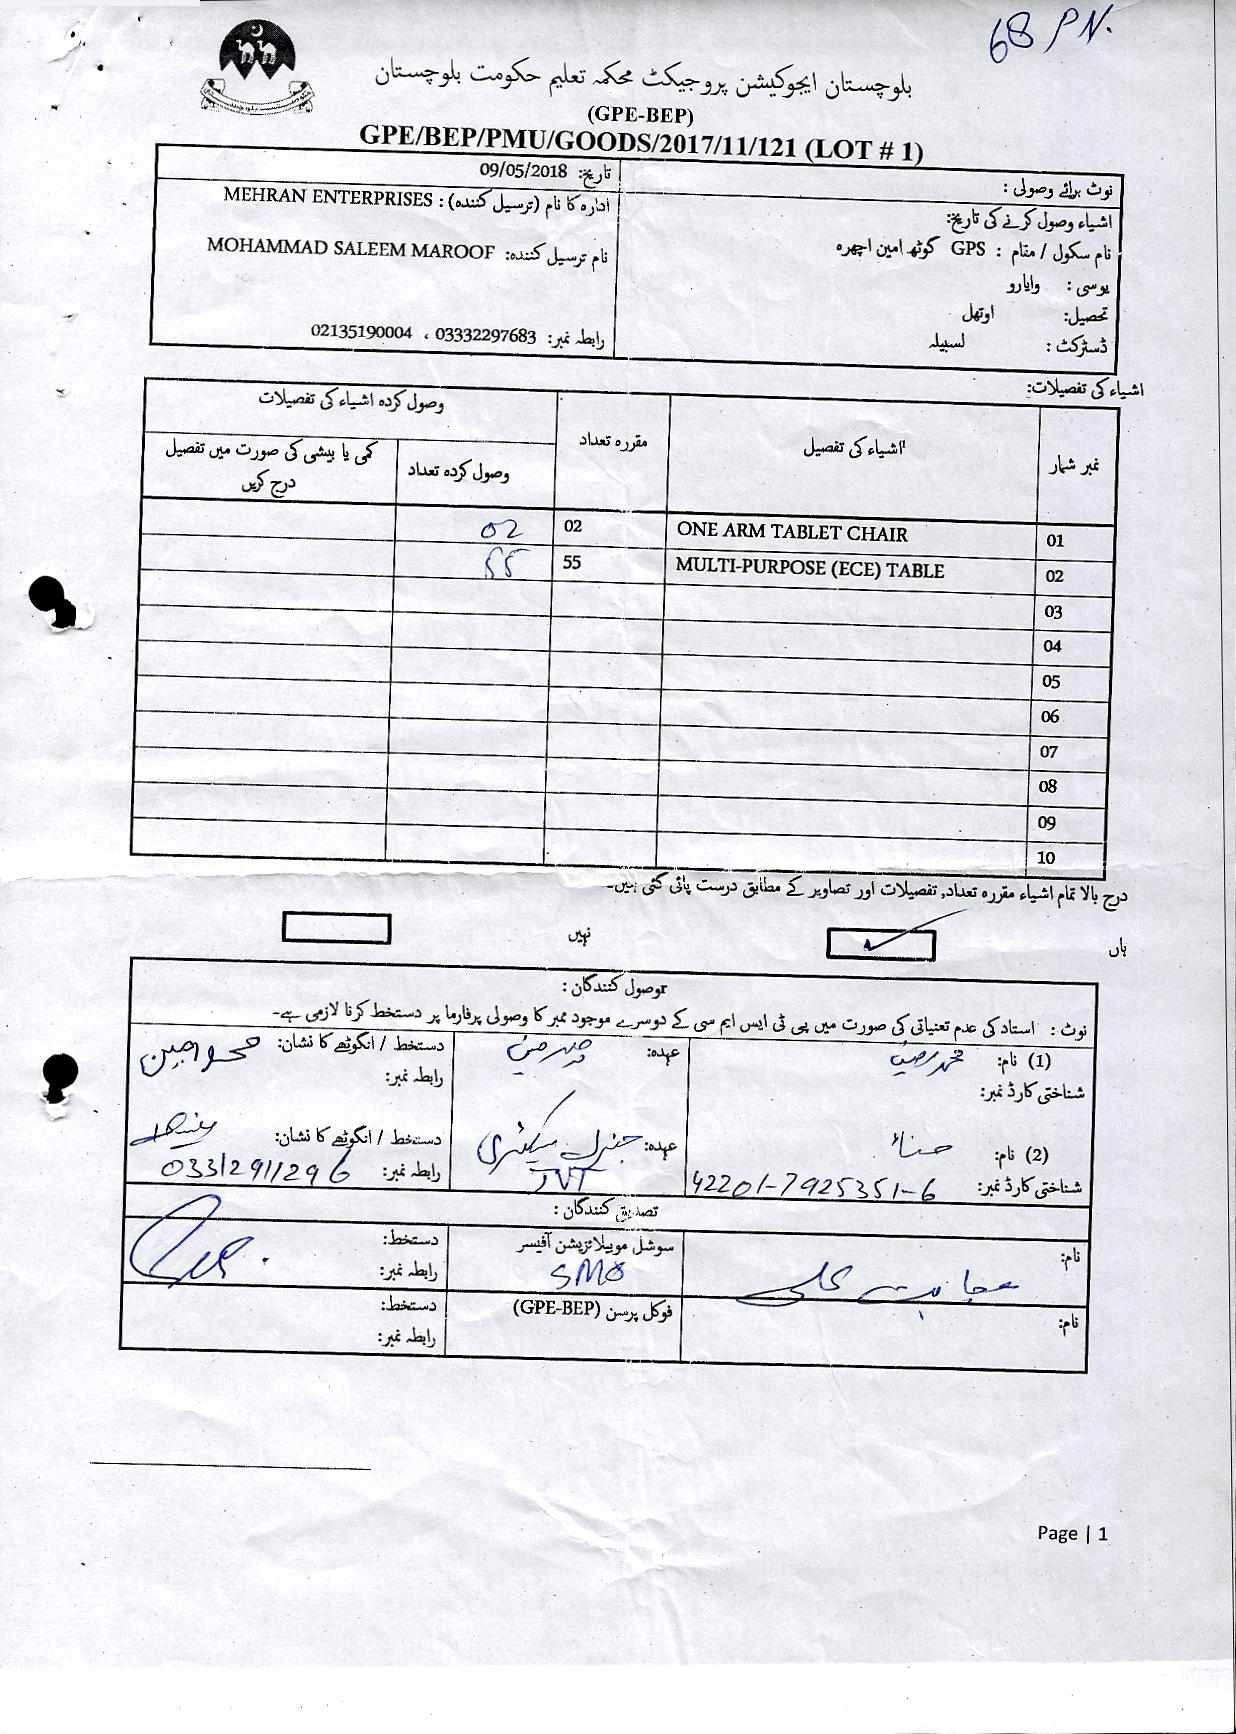 68 PN.
بلوچستان ایجوکیشن پروجیکٹ محکمہ تعلیم حکومت بلوچستان
(GPE-BEP)
GPE/BEP/PMU/GOODS/2017/11/121 (LOT # 1)
نوٹ برائے وصولی :
اشیاء وصول کرنے کی تاریخ:
نام سکول / مقام : GPS گوٹھ امین اچھرہ
یوسی : وایارو
تحصیل: اوتھل
ڈسٹرکٹ : لسبیلہ
تاریخ: 09/05/2018
ادارہ کا نام (ترسیل کنندہ) : MEHRAN ENTERPRISES
نام ترسیل کنندہ: MOHAMMAD SALEEM MAROOF
رابطہ نمبر: 03332297683 ، 02135190004
اشیاء کی تفصیلات:
نمبر شمار اشیاء کی تفصیل مقررہ تعداد وصول کردہ اشیاء کی تفصیلات
وصول کردہ تعداد کمی یا بیشی کی صورت میں تفصیل
درج کریں
01 ONE ARM TABLET CHAIR 02 02
02 MULTI-PURPOSE (ECE) TABLE 55 55
03
04
05
06
07
08
09
10
درج بالا تمام اشیاء مقررہ تعداد, تفصیلات اور تصاویر کے مطابق درست پائی گئی ہیں۔
ہاں نہیں
وصول کنندگان :
نوٹ : استاد کی عدم تعنیاتی کی صورت میں پی ٹی ایس ایم سی کے دوسرے موجود ممبر کا وصولی پرفارما پر دستخط کرنا لازمی ہے۔
(1) نام: محمد عہدہ: چیرمین دستخط / انگوٹھے کا نشان:
شناختی کارڈ نمبر: رابطہ نمبر:
(2) نام: حناء عہدہ: جنرل سیکٹری دستخط / انگوٹھے کا نشان:
شناختی کارڈ نمبر: 42201-7925351-6 JVT رابطہ نمبر: 03312911296
تصدیق کنندگان :
نام: سوشل موبیلائزیشن آفیسر دستخط:
SMO رابطہ نمبر:
نام: فوکل پرسن (GPE-BEP) دستخط:
رابطہ نمبر:
Page | 1